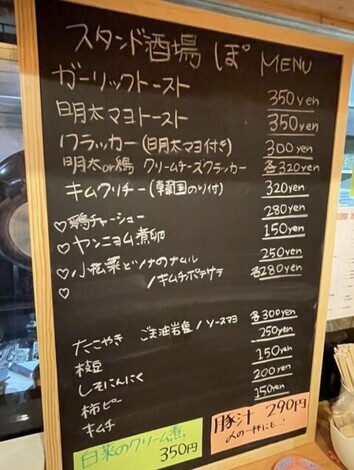 スタンド酒場 ぽ MENU
ガーリックトースト 350yen
明太マヨトースト 350yen
クラッカー(明太マヨ付き) 300yen
明太or鶏 クリームチーズクラッカー 各320yen
キムクリチー(韓国のり付) 320yen
♡鶏チャーシュー 280yen
♡ヤンニョム煮卵 150yen
♡小松菜とツナのナムル 250yen
♡ /キムチポテサラ 各280yen
たこやき ごま油岩塩/ソースマヨ 各300yen
枝豆 250yen
しそにんにく 150yen
柿ピー 200yen
キムチ 150yen
白菜のクリーム煮 350円
豚汁 290円
〆の一杯にも…!